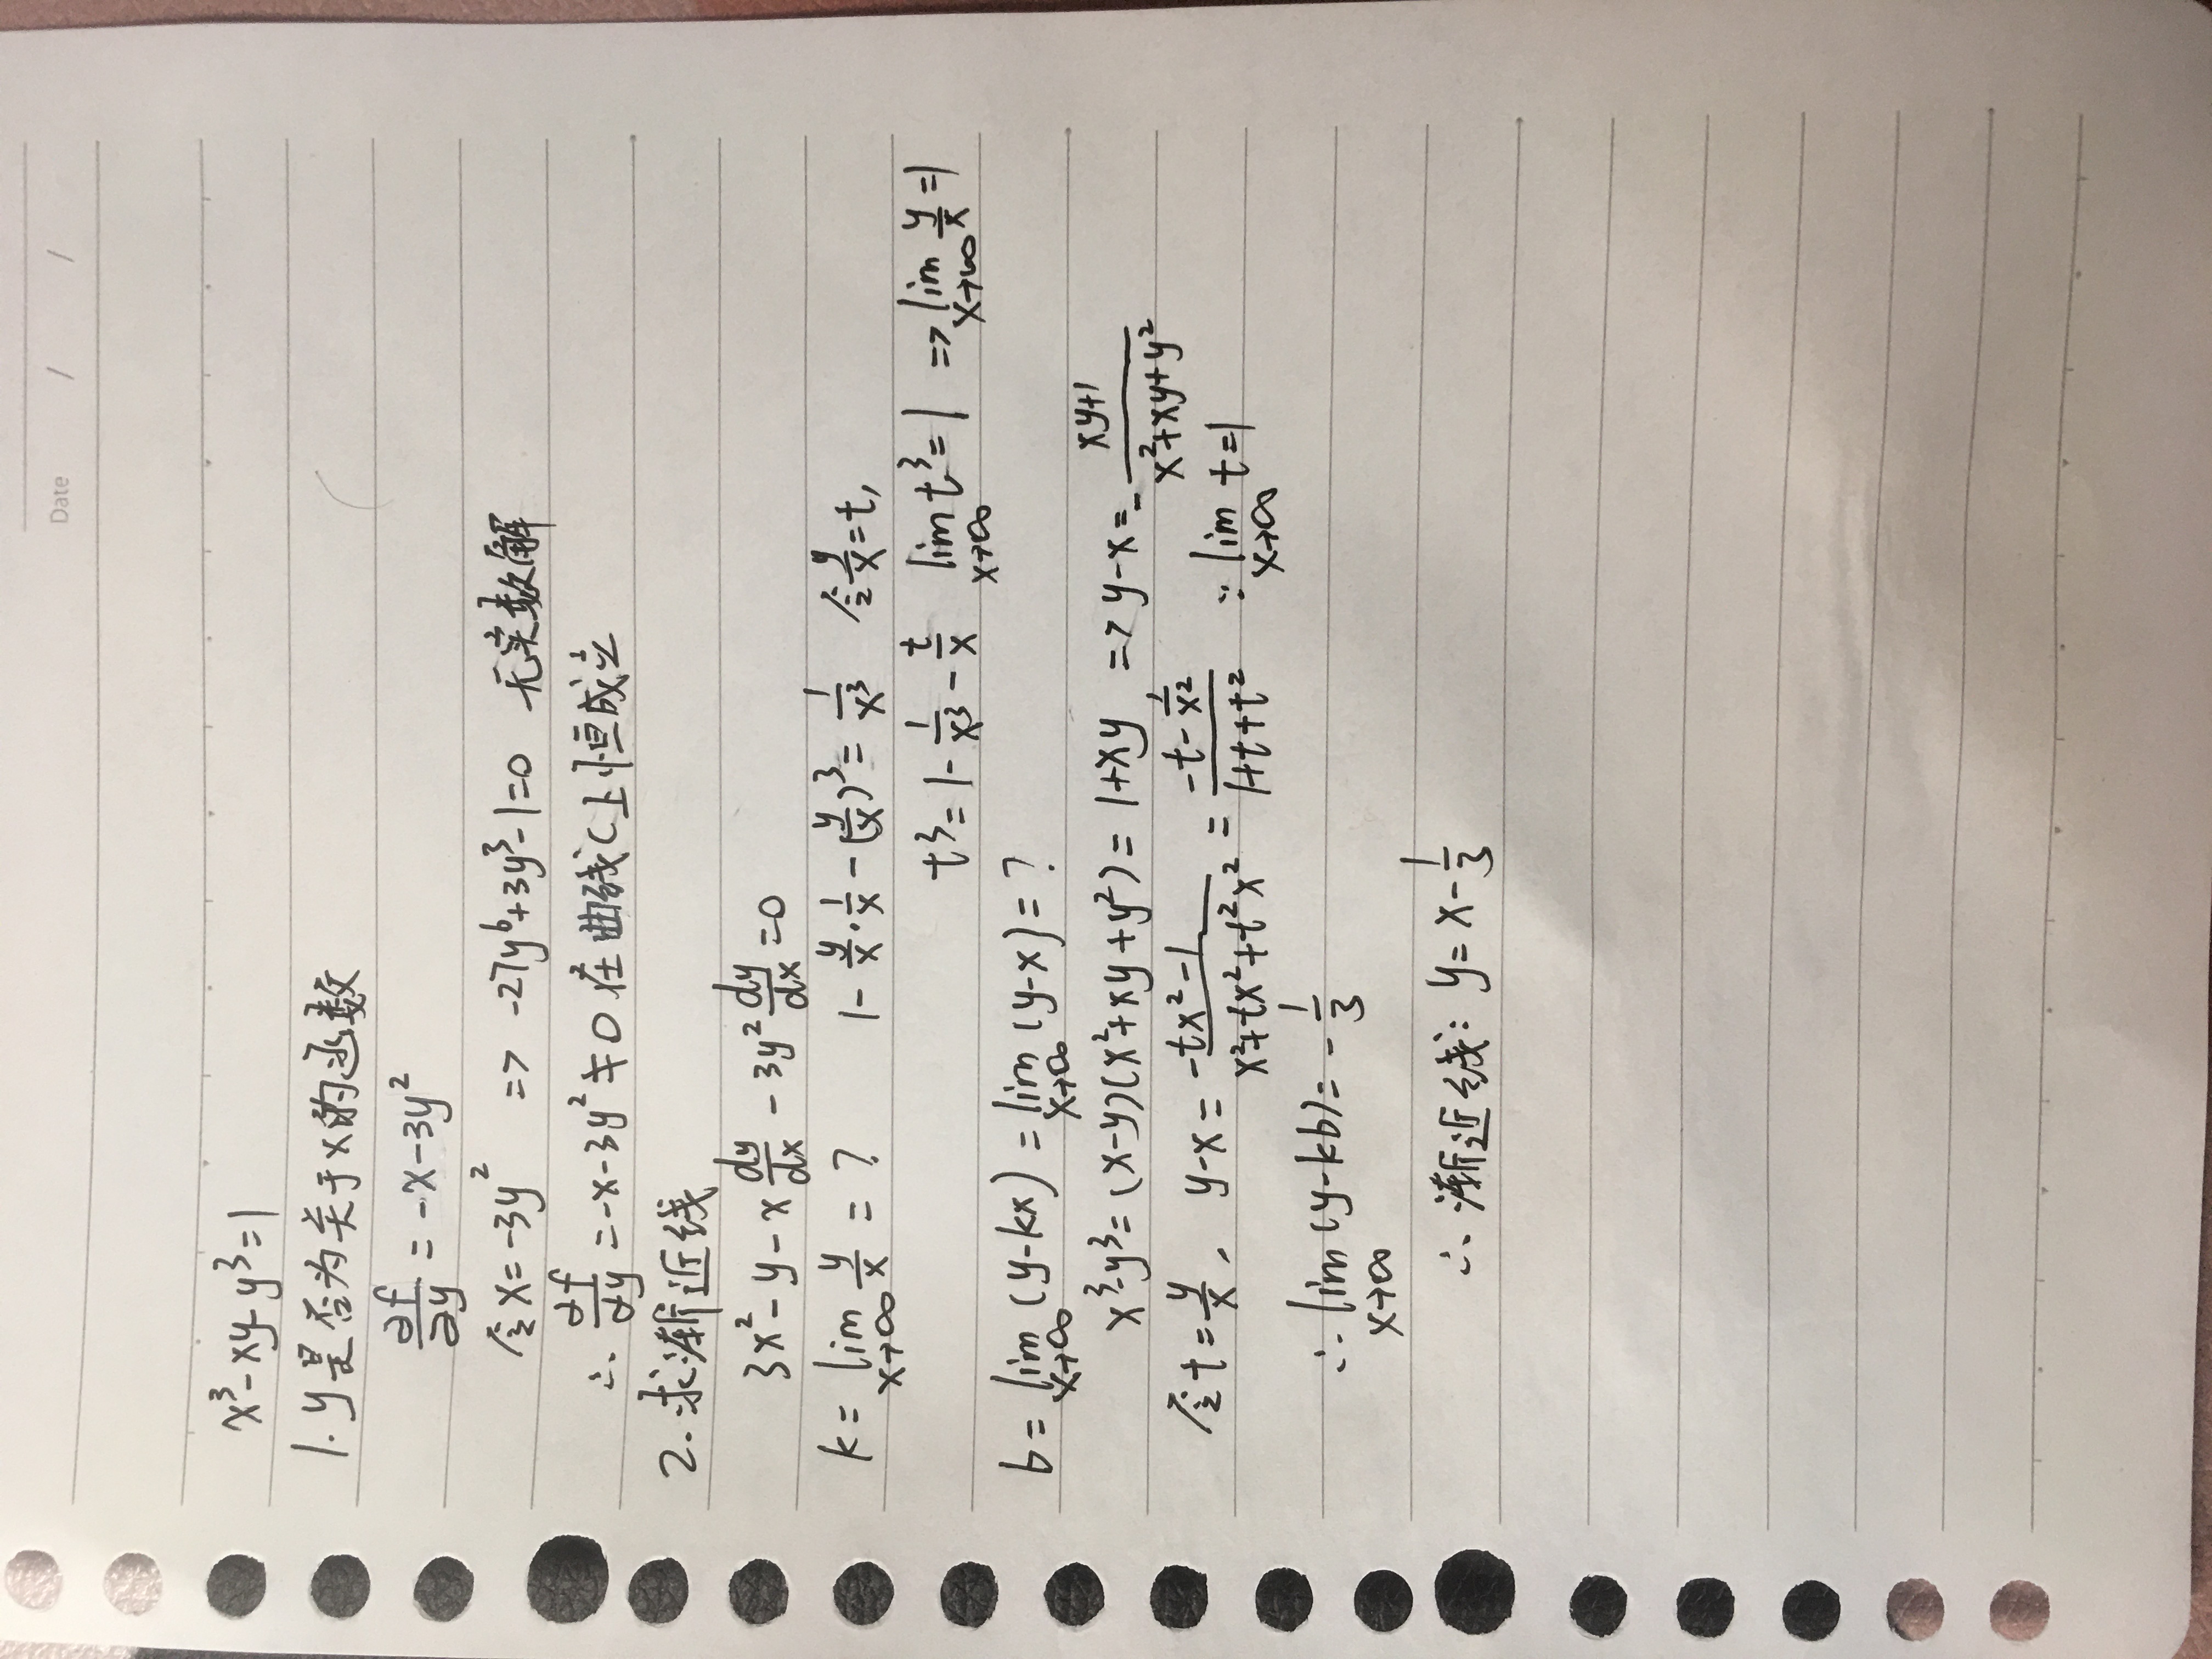 Date / /
x³-xy-y³=1
1. y是否为关于x的函数
∂f/∂y = -x-3y²
令x=-3y² => -27y⁶+3y³-1=0 无实数解
∴ ∂f/∂y =-x-3y²≠0 在曲线C上恒成立
2. 求渐近线
3x²-y-x dy/dx - 3y² dy/dx =0
k= lim x→∞ y/x = ? 1- y/x · 1/x - (y/x)³= 1/x³ 令 y/x =t,
t³= 1- 1/x³ - t/x lim x→∞ t³=1 => lim x→∞ y/x =1
b= lim x→∞ (y-kx) = lim x→∞ (y-x)= ?
x³-y³= (x-y)(x²+xy+y²)= 1+xy => y-x=- (xy+1)/(x²+xy+y²)
令t= y/x , y-x= (-tx²-1)/(x²+tx²+t²x²) = (-t-1/x²)/(1+t+t²) ∵ lim x→∞ t=1
∴ lim x→∞ (y-kb)= - 1/3
∴ 渐近线: y= x- 1/3